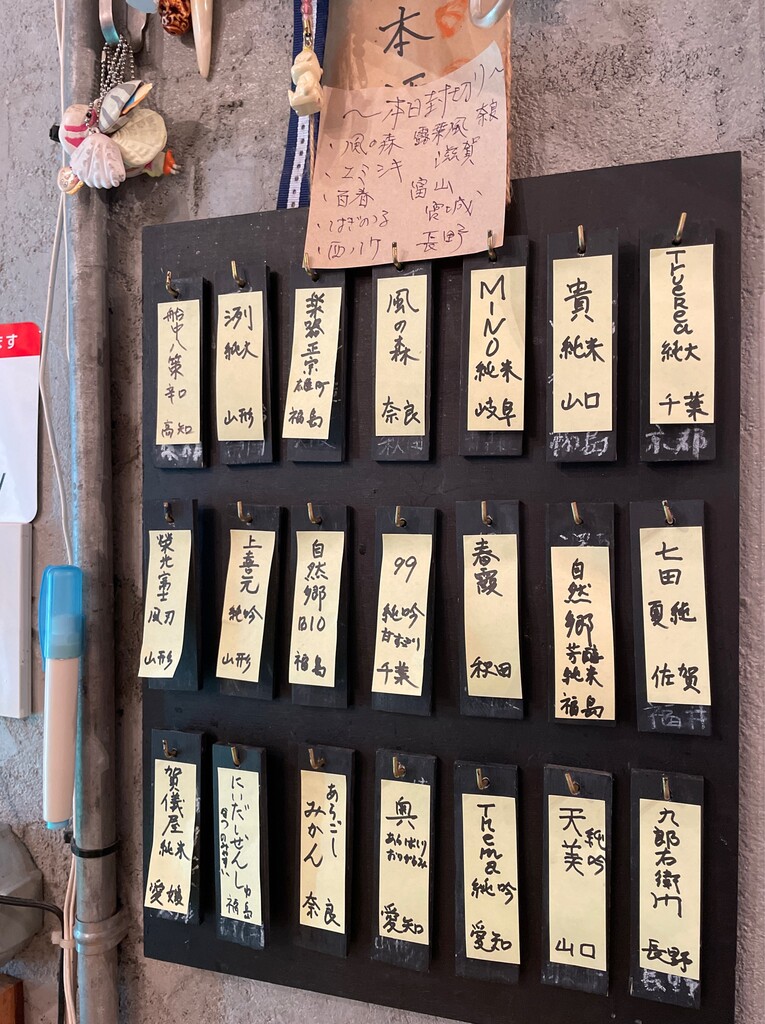 本
～本日封切り～
・風の森 露葉風 奈良
・エミシキ 滋賀
・百春
・はぎのつる 宮城
・西ノケ 長野
ます
船中八策
辛口
高知
洌
純大
山形
楽器正宗
雄町
福島
風の森
奈良
MINO
純米
岐阜
貴
純米
山口
京都
純大
千葉
榮光冨士
風刃
山形
上喜元
純吟
山形
自然郷
BIO
福島
99
純吟
甘すっぱり
千葉
春霞
秋田
自然郷
芳醇
純米
福島
七田
夏純
佐賀
福井
賀儀屋
純米
愛媛
にいだしぜんしゅ
福島
あらごし
みかん
奈良
奥
あらばしり
おりがらみ
愛知
Thema
純吟
愛知
天美
純吟
山口
九郎右衛門
長野